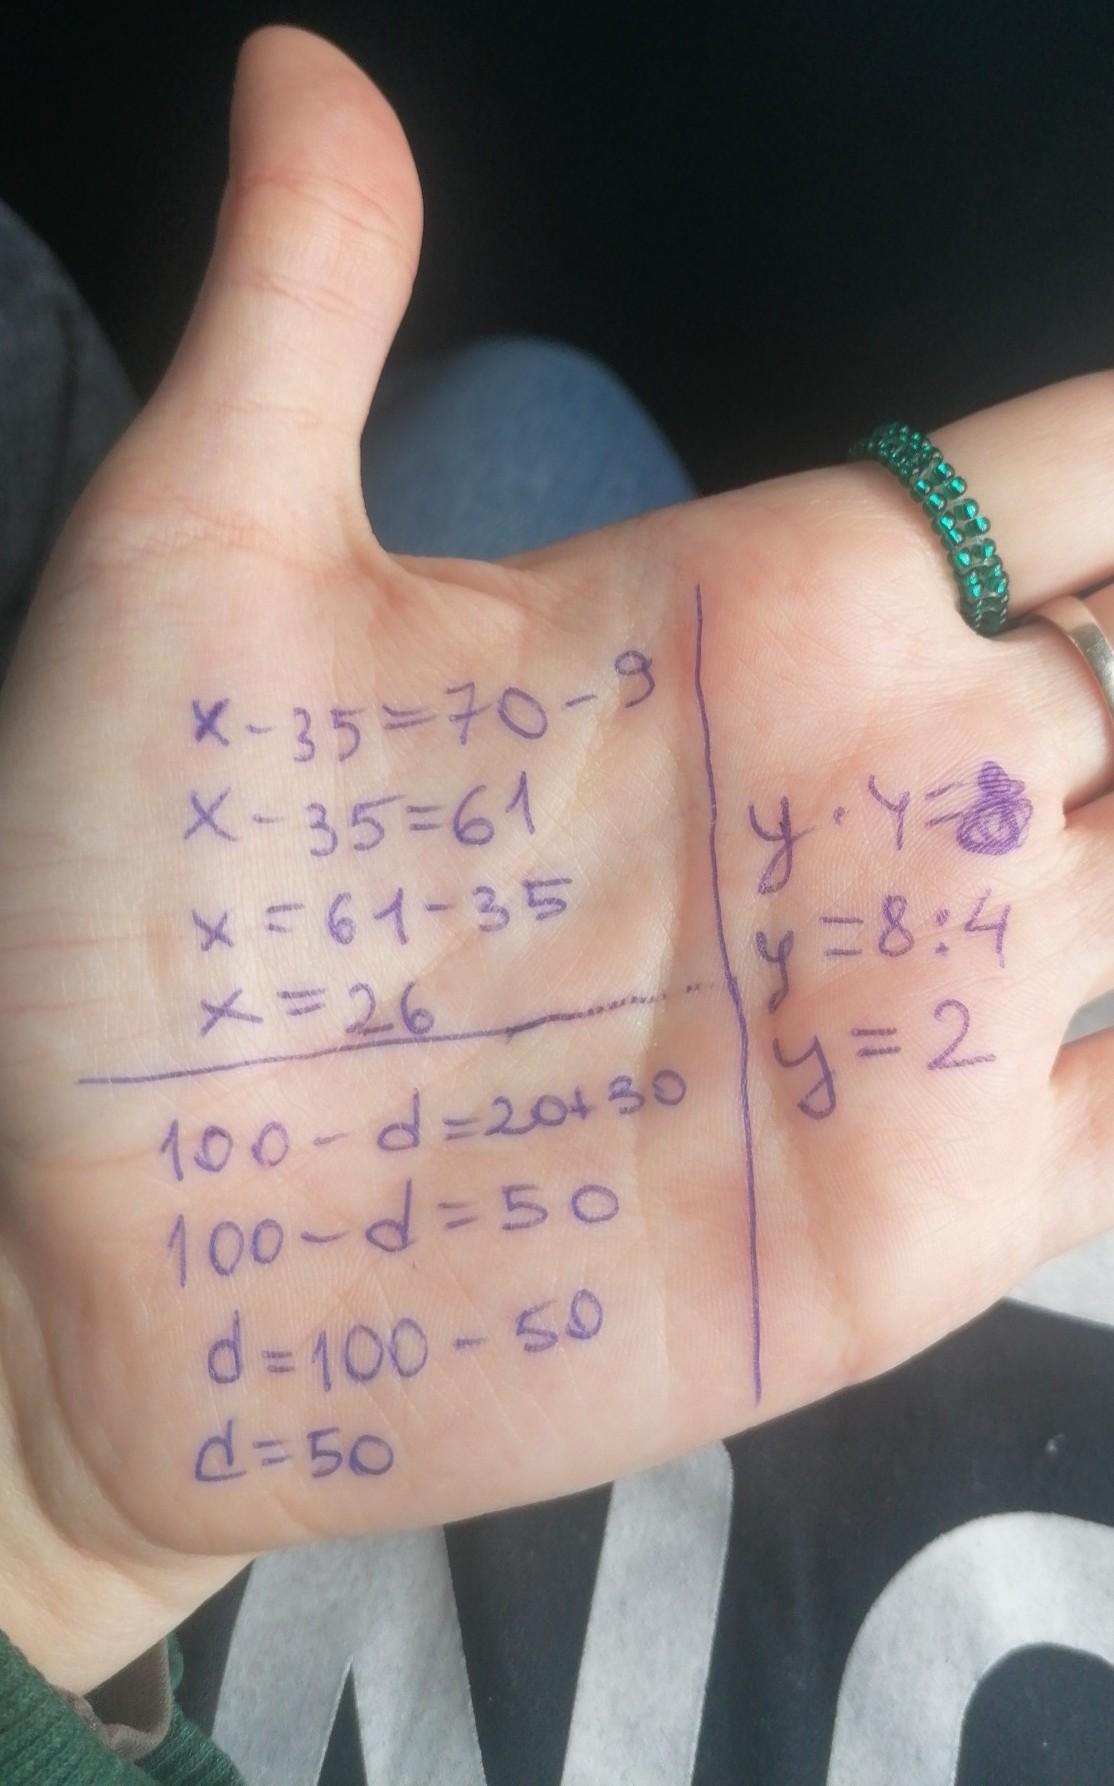 x - 35 = 70 - 9
x - 35 = 61
x = 61 - 35
x = 26
100 - d = 20 + 30
100 - d = 50
d = 100 - 50
d = 50
y · 4 = 8
y = 8 : 4
y = 2